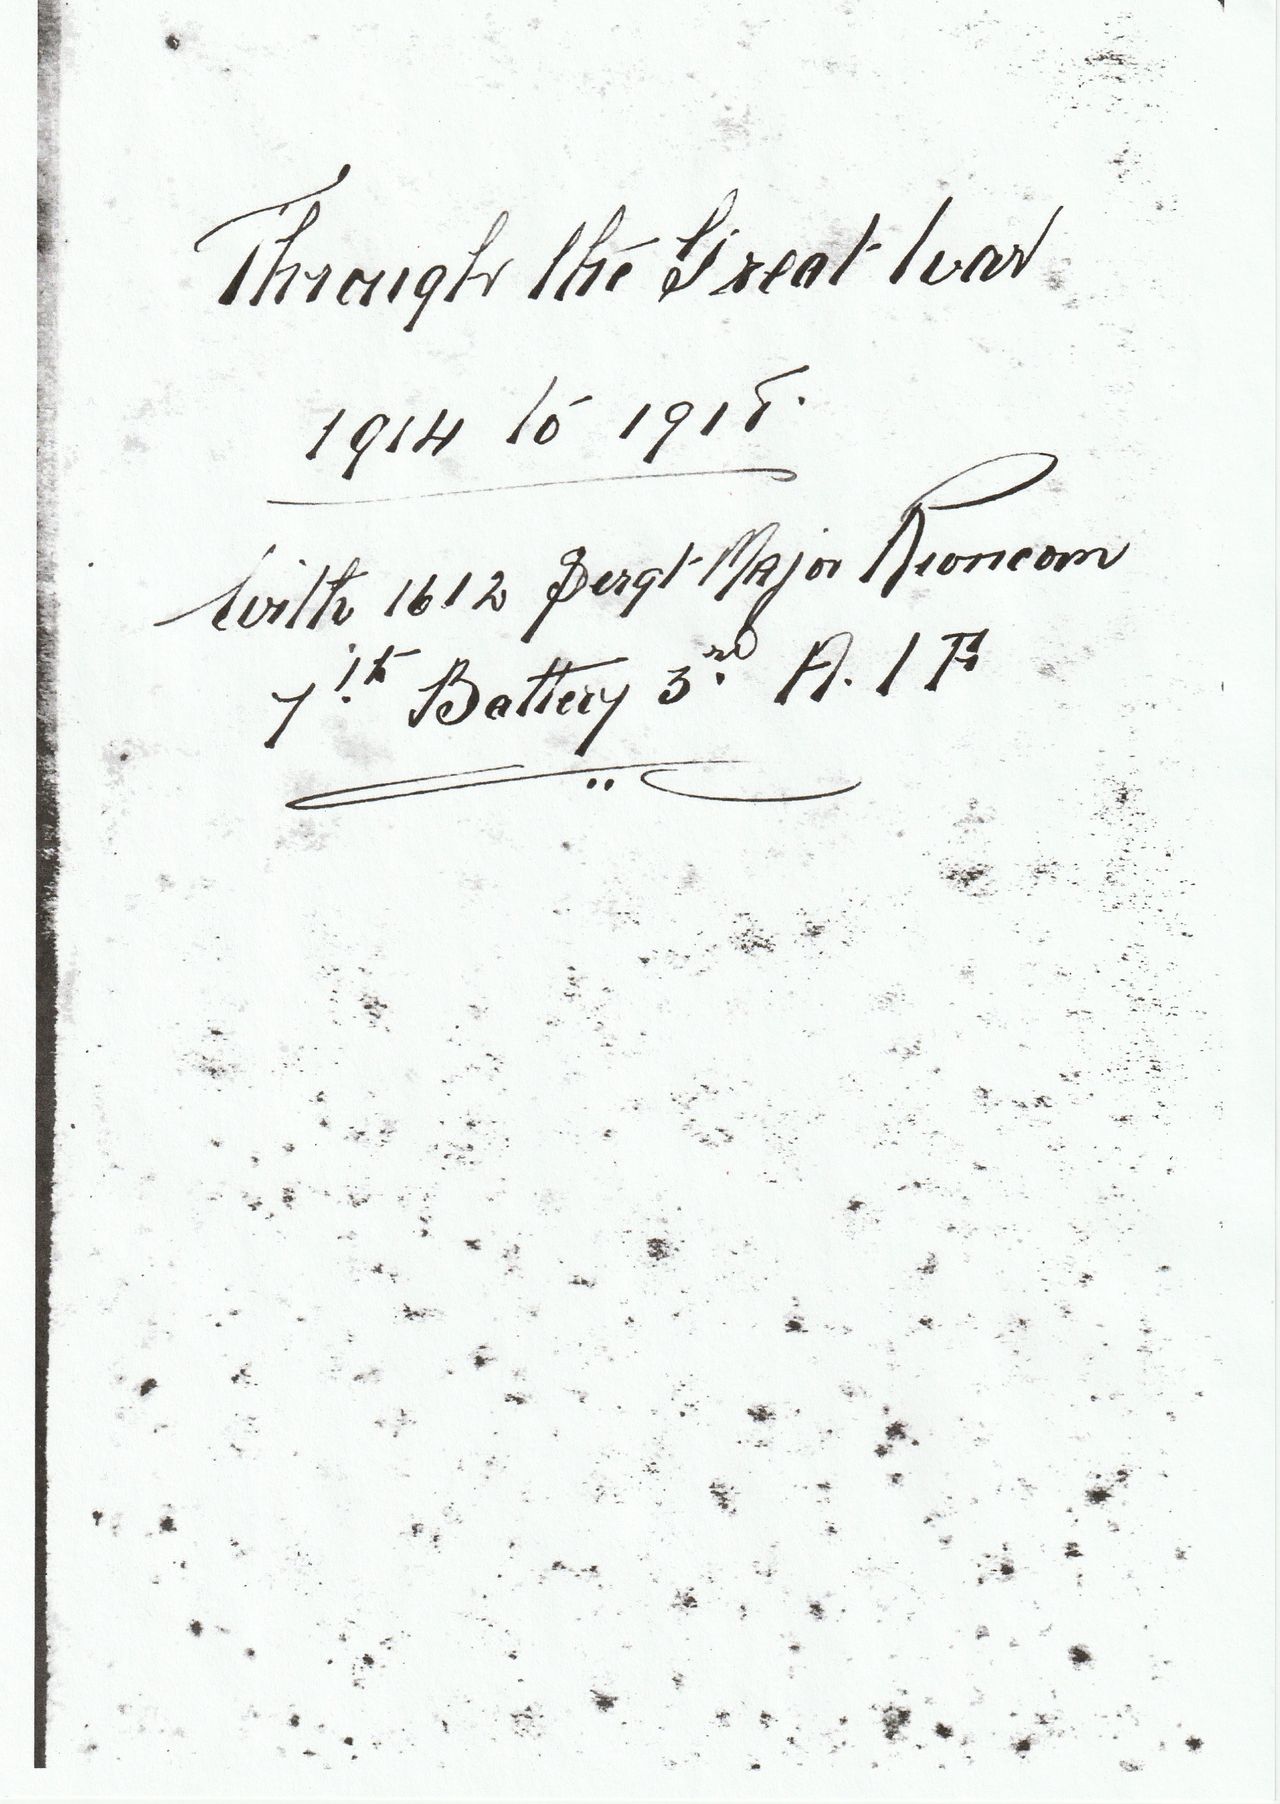 Through the Great War
1914 to 1915.
With 1612 Sergt Major
7th Battery 3rd A. I F